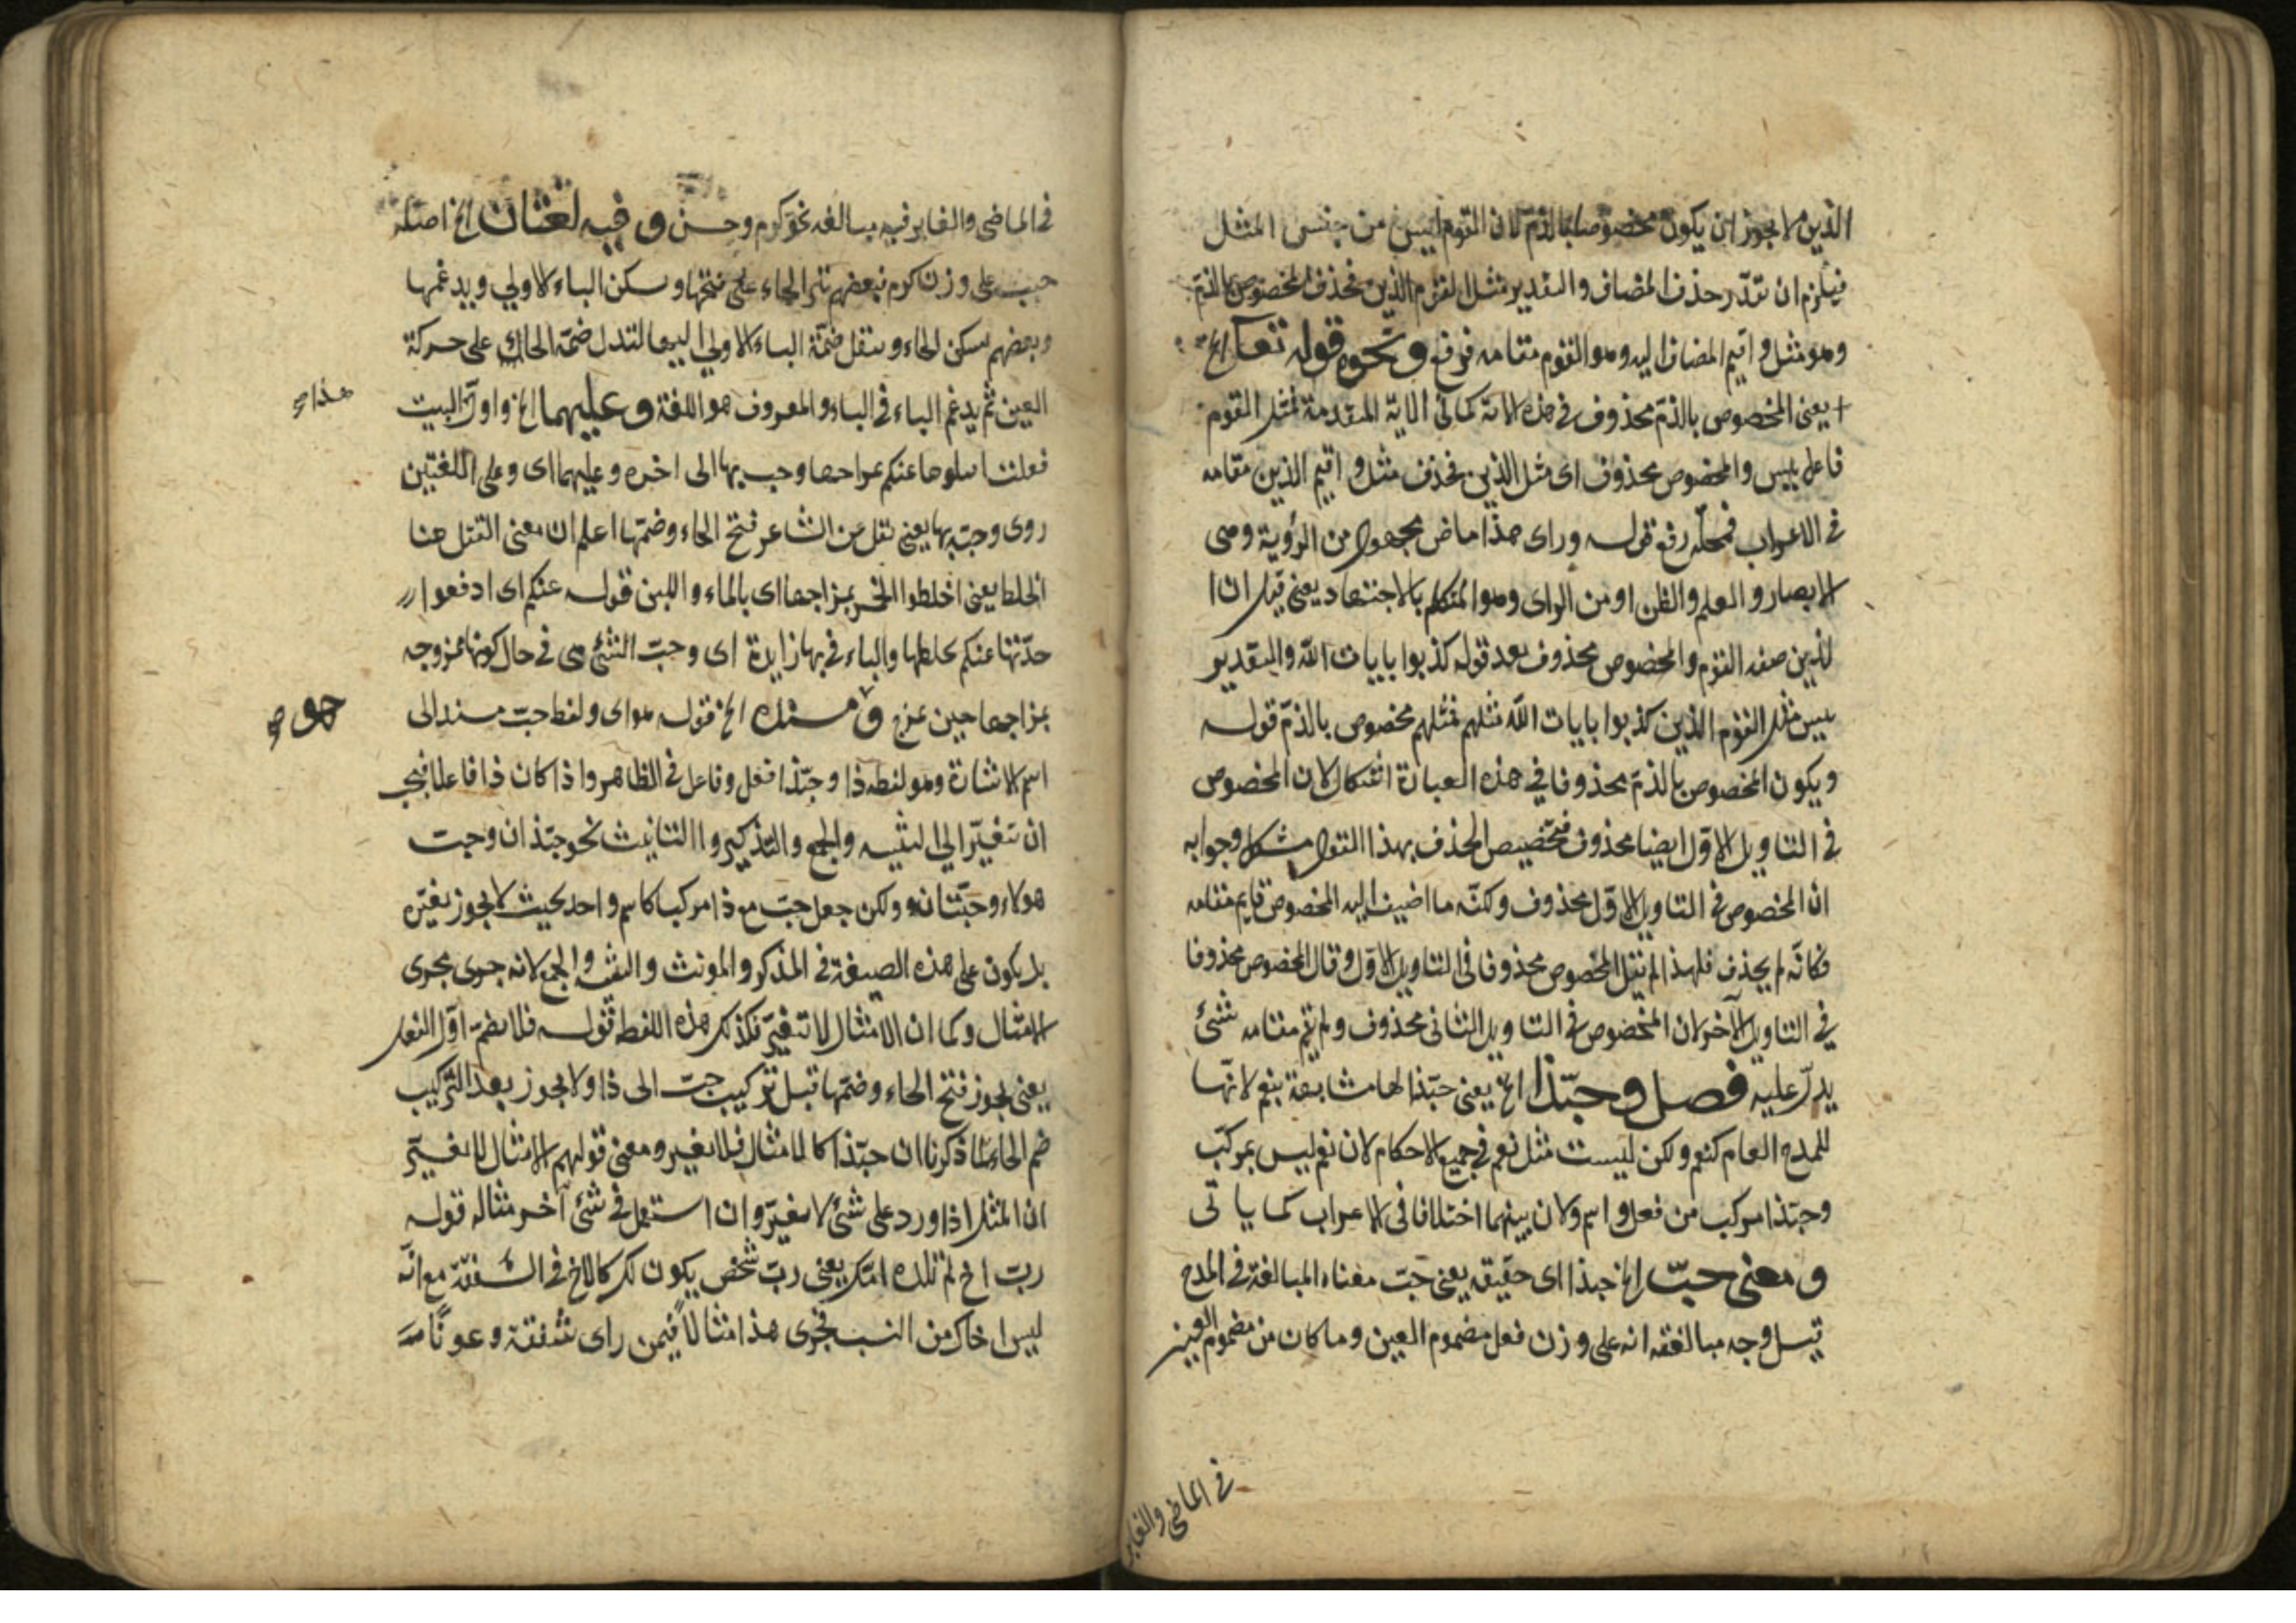 الذين لا يجوز ان يكون مخصوصا بالذم لان القوم ليس من جنس المثل
فيلزم ان تقدر حذف المضاف والتقدير مثل القوم الذين فحذف المخصوص بالذم
وهو مثل و اقيم المضاف اليه وهو القوم مقامه فرفع ونحوه قوله تعا الخ
يعنى المخصوص بالذم محذوف فى هذه الاية كما فى الاية المتقدمة فمثل القوم
فاعل بئس والمخصوص محذوف اى مثل الذين فحذف مثل و اقيم الذين مقامه
فى الاعراب فمحله رفع قوله وراى هذا ماض مجهول من الرؤية وهى
الابصار و العلم والظن او من الراى وهو المتكلم بالاجتهاد يعنى قيل ان ا
لذين صفه القوم والمخصوص محذوف بعد قوله كذبوا بايات الله والتقدير
بيس مثل القوم الذين كذبوا بايات الله مثلهم فمثلهم مخصوص بالذم قوله
ويكون المخصوص بالذم محذوفا فى هذه العبارة اشكال لان المخصوص
فى التاويل الاول ايضا محذوف فتخصيص الحذف بهذا القول مشكل وجوابه
ان المخصوص فى التاويل الاول محذوف ولكنه ما اضيف اليه المخصوص قايم مقامه
فكانه لم يحذف فلهذا لم يقل المخصوص محذوفا فى التاويل الاول وقال المخصوص محذوفا
فى التاويل الآخر لان المخصوص فى التاويل الثانى محذوف ولم يقم مقامه شئ
يدل عليه فصل وحبّذا الخ يعنى حبذا لها مشابهة بنعم لانها
للمدح العام كنعم ولكن ليست مثل نعم فى جميع الاحكام لان نعم ليس بمركب
وحبذا مركب من فعل و اسم ولان بينهما اختلافا فى الاعراب كما ياتى
ومعنى حبّ الخ حبذا اى حقيقه يعنى حبّ معناه المبالغة فى المدح
قيل وجه مبالغته انه على وزن فعل مضموم العين وما كان من مضموم العين
فى الماضى والغابر
فى الماضى والغابر فيه مبالغه نحو كرم وحسن وفيه لغتان الخ اصله
حبب على وزن كرم فبعضهم تترك الحاء على فتحتها و سكن الباء الاولي ويدغمها
وبعضهم يسكن الحاء وينقل ضمة الباء الاولى اليها لتدل ضمة الحاء على حركة
العين ثم يدغم الباء فى الباء والمعروف هو اللغة وعليهما الخ واول البيت
هذا
فقلت اقتلوها عنكم بمزاجها وحب بها الى اخره وعليهما اى وعلى اللغتين
روى وحبّ بها يعنى نقل من الشاعر فتح الحاء وضمها اعلم ان معنى القتل هنا
الخلط يعنى اخلطوا الخمر بمزاجها اى بالماء واللبن قوله عنكم اى ادفعوا
حدتها عنكم بخلطها والباء فى بها زايدة اى وحبّ الشئ هى فى حال كونها ممزوجه
بمزاجها حين مزج ومسنده الخ قوله هو اى ولفط حبّ مسند الى
هو
اسم الاشارة وهو لفظه ذا وحبّذا فعل وفاعل فى الظاهر واذا كان ذا فاعلا فيجب
ان يتغيّر الى التثنيه والجمع والتذكير والتانيث نحو حبّذان وحبت
هولاء وحبّتان ولكن جعل حبّ مع ذا مركبا كاسم واحد بحيث لا يجوز تغيّره
بل يكون على هذه الصيغة فى المذكر والمونث والتثنيه والجمع لانه جرى مجرى
الامثال وكما ان الامثال لا تتغيّر فكذلك هذه اللفظه قوله فلا يضم اوّل الفعل
يعنى يجوز فتح الحاء وضمّها قبل تركيب حبّ الى ذا ولا يجوز بعد التركيب
ضم الحاء لما ذكرنا ان حبّذا كالامثال فلا يغير ومعنى قولهم الامثال لا يغيّر
ان المثل اذا ورد على شئ لا يغيّر وان استعمل فى شئ آخر مثاله قوله
ربّ اخ لم تلده امّك يعنى ربّ شخص يكون لك كالاخ فى الشفقة مع انّه
ليس اخاك من النسب فجرى هذا مثالاً فيمن راى شفقة وعونًا من